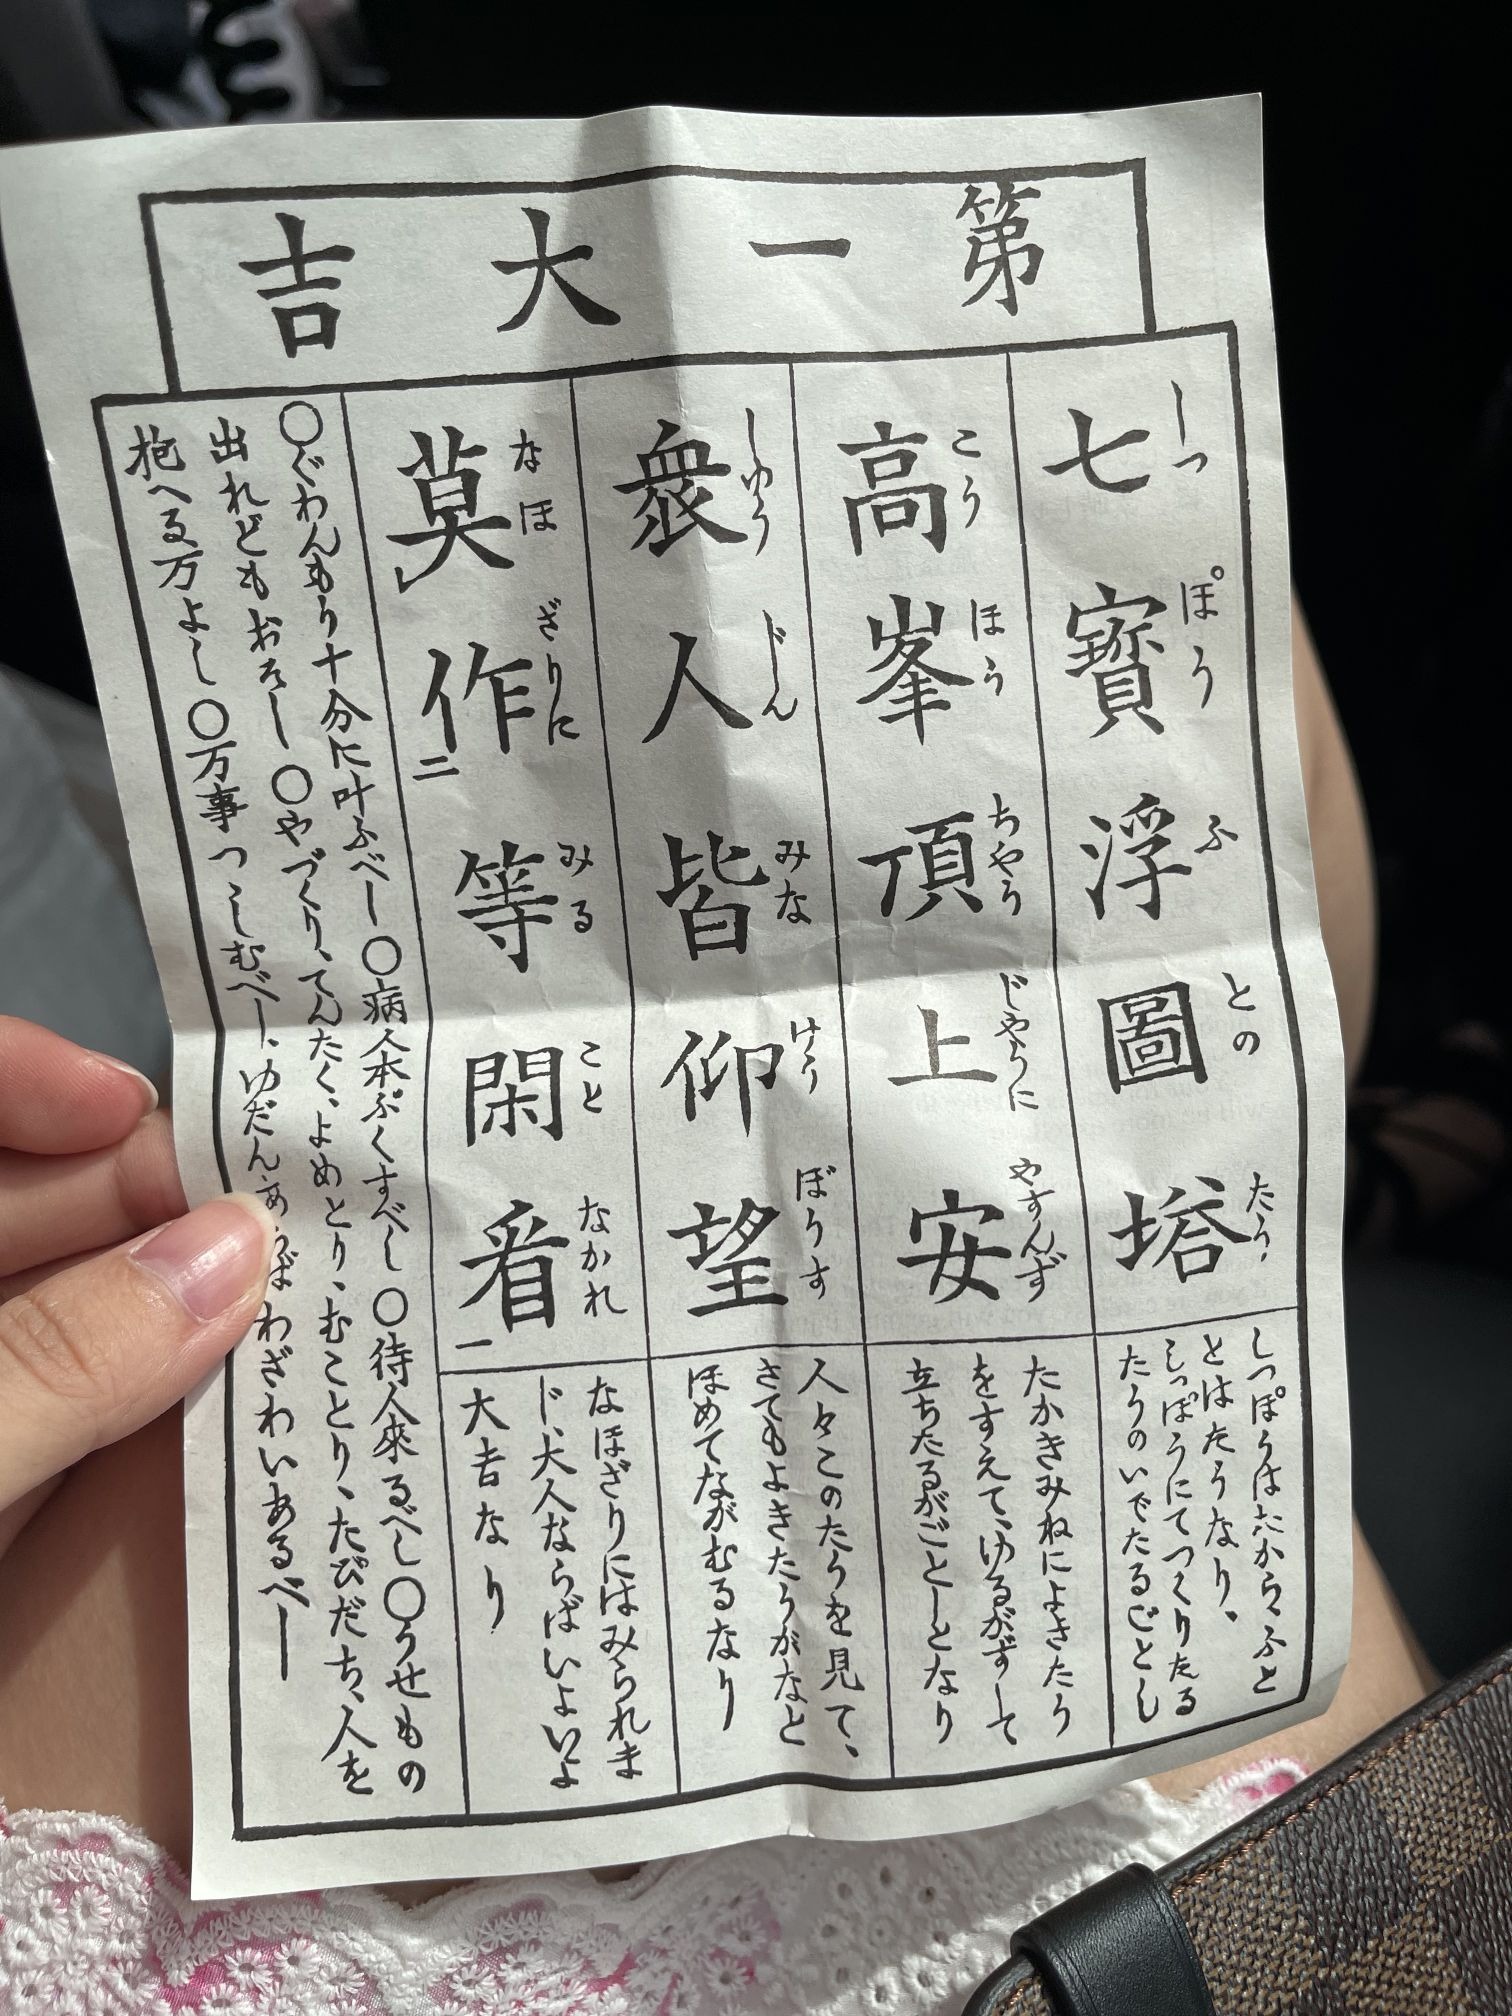 第一大吉
七寳浮圖塔
しつぽうふとのたう
しつぽうはたから、ふと
とはたうなり。
しつぽうにてつくりたる
たうのいでたるごとし
高峯頂上安
こうほうちやうじやうにやすんず
たかきみねによきたう
をすえて、ゆるがずして
立ちたるがごとしとなり
衆人皆仰望
しゆうじんみなけうぼうす
人々このたうを見て、
さてもよきたうがなと
ほめてながむるなり
莫作二等閑看一
なほざりにみることなかれ
なほざりにはみられま
じ、大人ならばいよいよ
大吉なり
〇ぐわんもう十分に叶ふべし〇病人本ぷくすべし〇待人來るべし〇うせもの
出れどもおそし〇やづくり、てんたく、よめとり、むことり、たびだち、人を
抱へる万よし〇万事つゝしむべし、ゆだんわざわいあるべし